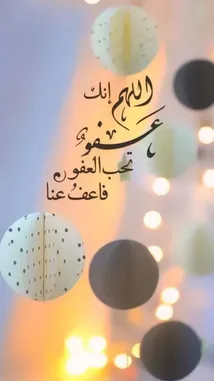 اللهم إنك
عفوٌ
تحب العفو
فاعفُ عنا